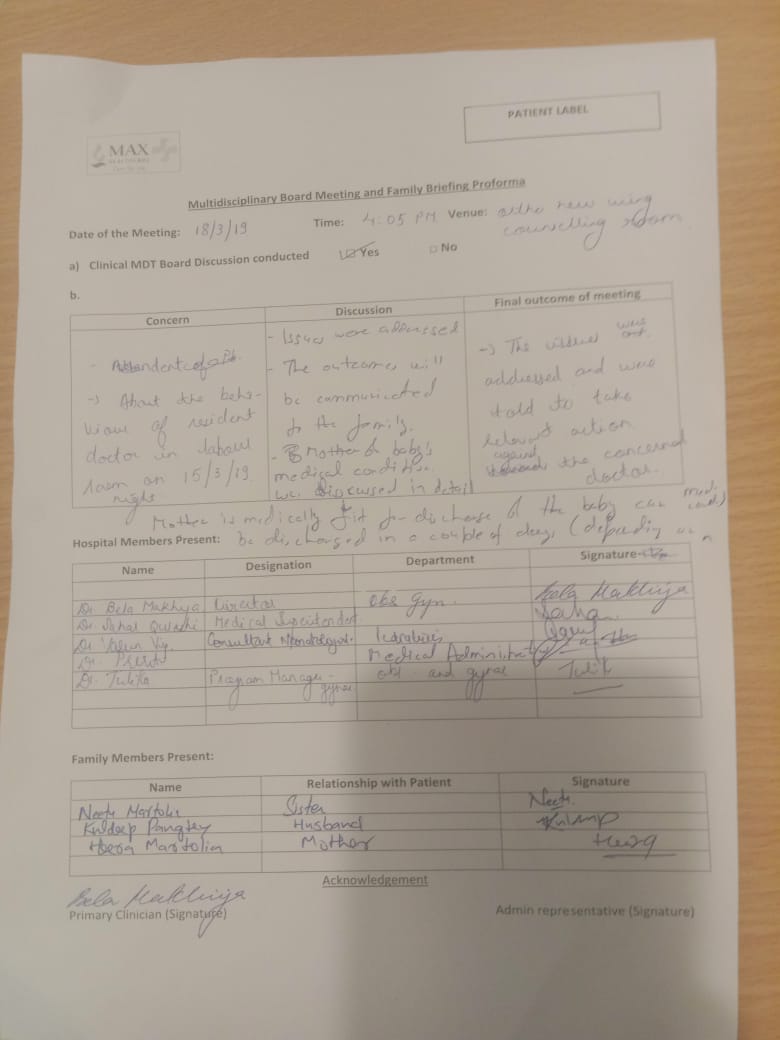 PATIENT LABEL
MAX
HEALTHCARE
Multidisciplinary Board Meeting and Family Briefing Proforma
Date of the Meeting: 18/3/19 Time: 4:05 PM Venue: ortho new wing
counselling room
a) Clinical MDT Board Discussion conducted Yes No
b.
Concern Discussion Final outcome of meeting
- Issues were addressed
- The outcomes will
be communicated
to the family.
- Mother & baby's
medical condition
discussed in detail
-> About the beha-
viour of resident
doctor in labour
room on 15/3/19
night
-> The were
addressed and were
told to take
relevant action
against the concerned
doctor.
Mother is medically fit for discharge & the baby can
be discharged in a couple of days (depending on
Hospital Members Present:
Name Designation Department Signature
Dr. Bela Makhija Director Obs Gyn. Bela Makhija
Dr. Medical
Dr. Consultant Neonatologist.
Dr. Medical Administrative
Dr. Tulika Program Manager - obs and gynae
gynae
Family Members Present:
Name Relationship with Patient Signature
Neetu Martolia Sister Neetu
Kuldeep Pangtey Husband
Heera Martolia Mother
Acknowledgement
Bela Makhija
Primary Clinician (Signature) Admin representative (Signature)